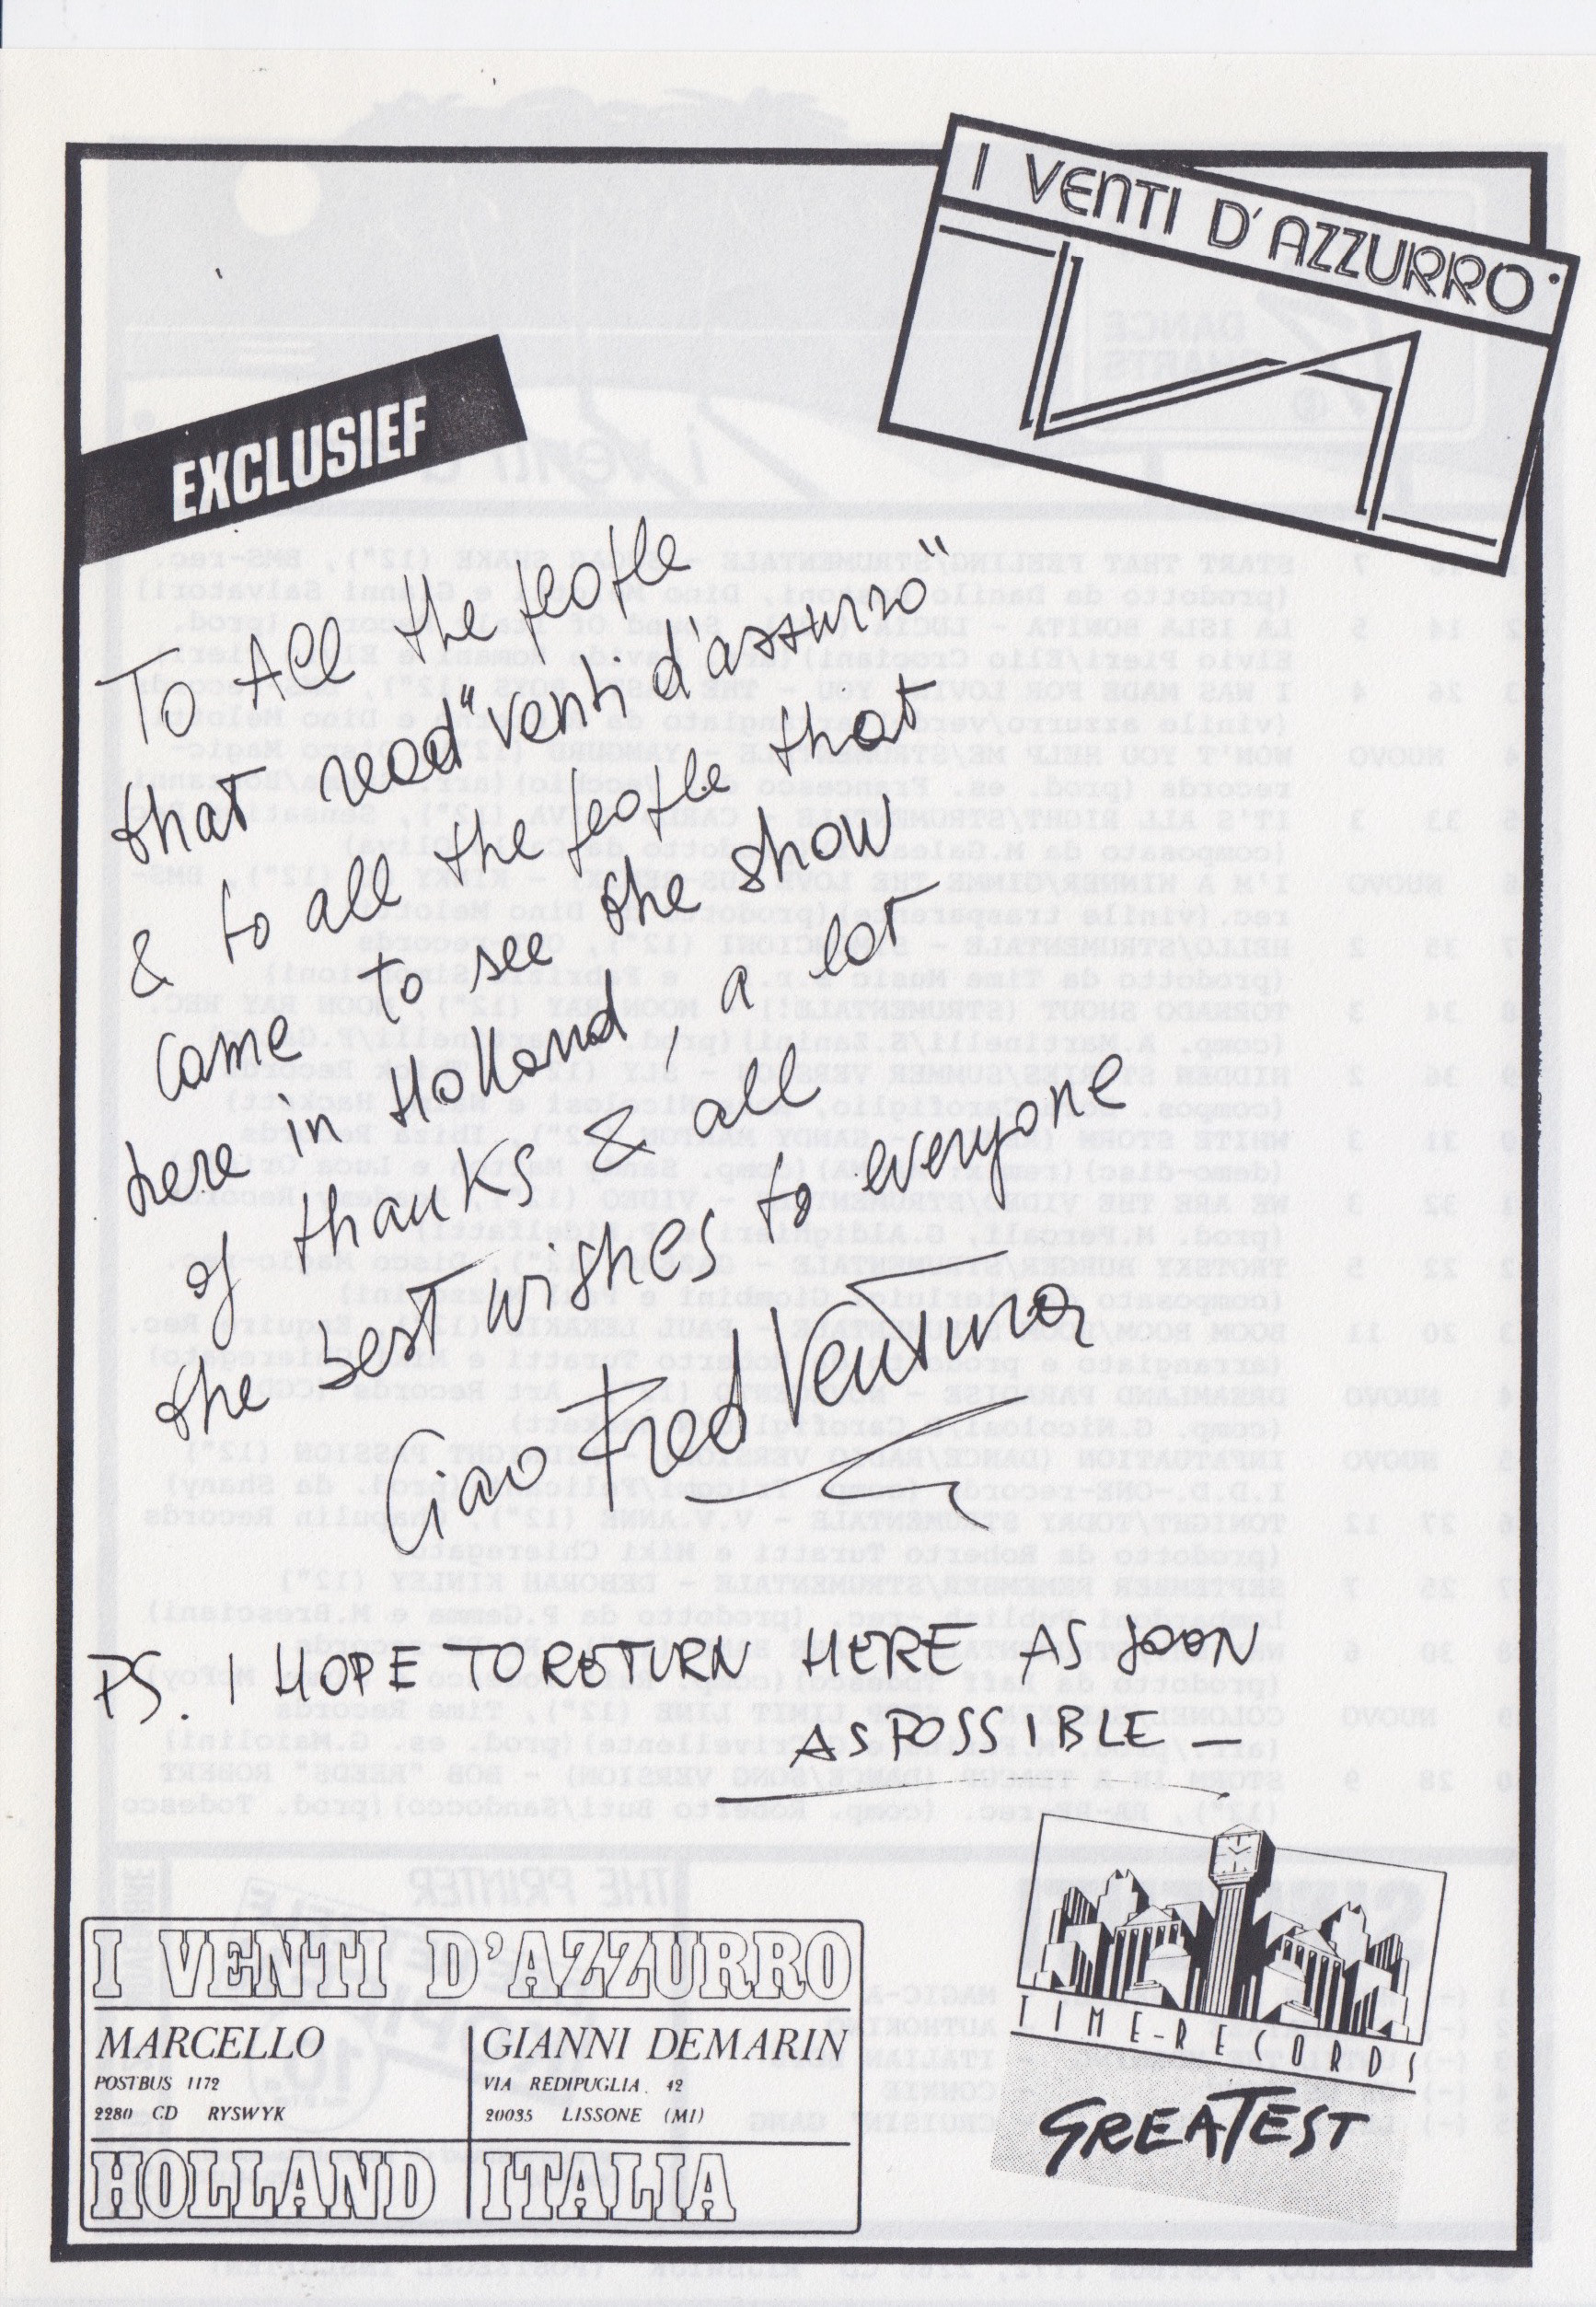 I VENTI D'AZZURRO
EXCLUSIEF
To All the people
that read "venti d'azzurro"
& to all the people that
came to see the show
here in Holland, a lot
of thanks & all
the best wishes to everyone
Ciao Fred Ventura
PS. I HOPE TO RETURN HERE AS SOON
AS POSSIBLE —
TIME-RECORDS
GREATEST
I VENTI D'AZZURRO
MARCELLO
POSTBUS 1172
2280 CD RYSWYK
HOLLAND
GIANNI DEMARIN
VIA REDIPUGLIA. 42
20035 LISSONE (MI)
ITALIA